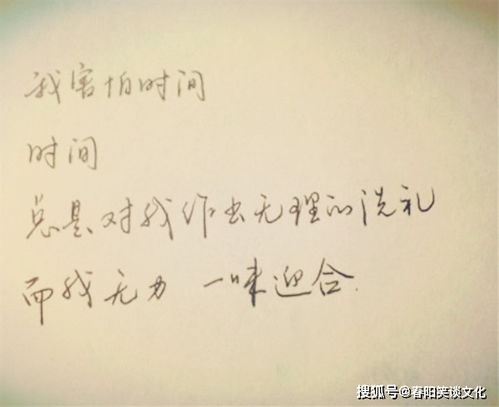 我害怕时间
时间
总是对我作出无理的洗礼
而我无力 一味迎合.
搜狐号@春阳笑谈文化